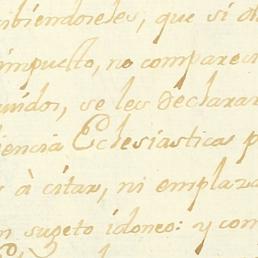 ibiéndoseles, que si
impuesto, no comparec
unidos, se les declarar
iencia Eclesiastica p
à citar, ni emplaza
n sugeto idoneo: y com